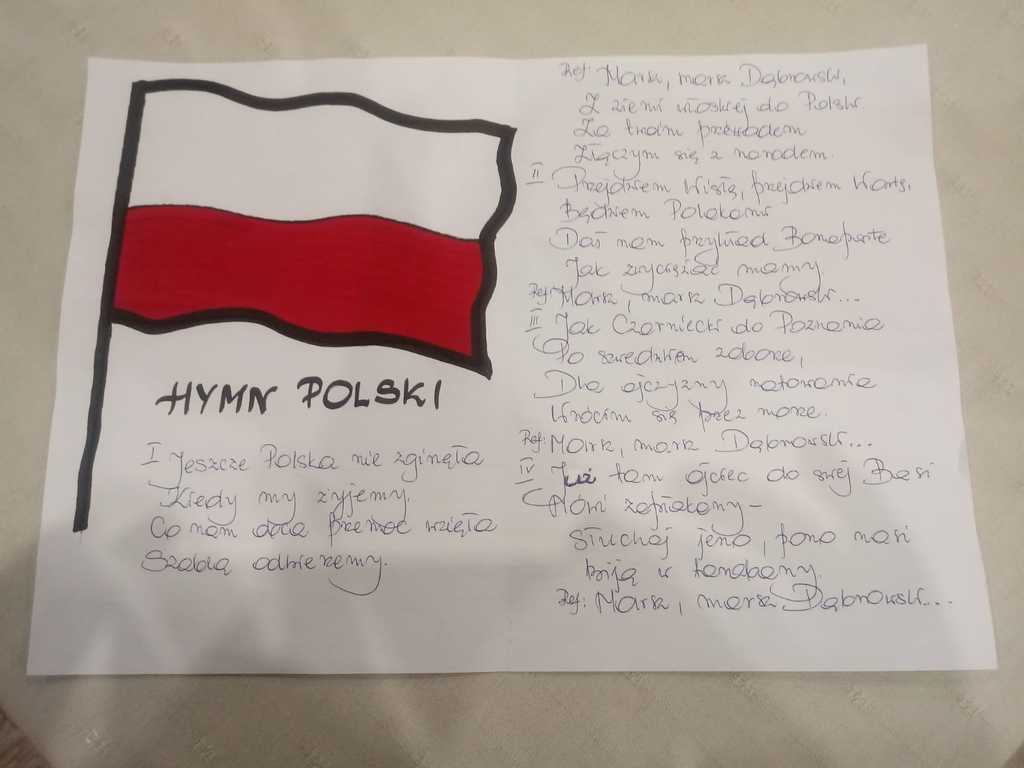 HYMN POLSKI
I Jeszcze Polska nie zginęła
Kiedy my żyjemy.
Co nam obca przemoc wzięła
Szablą odbierzemy.
Ref: Marsz, marsz Dąbrowski,
Z ziemi włoskiej do Polski
Za twoim przewodem
Złączym się z narodem.
II Przejdziem Wisłę, przejdziem Wartę,
Będziem Polakami
Dał nam przykład Bonaparte
Jak zwyciężać mamy.
Ref: Marsz, marsz Dąbrowski...
III Jak Czarniecki do Poznania
Po szwedzkiem zaborze,
Dla ojczyzny ratowania
Wrócim się przez morze.
Ref: Marsz, marsz Dąbrowski...
IV Już tam ojciec do swej Basi
Mówi zapłakany –
Słuchaj jeno, pono nasi
biją w tarabany.
Ref: Marsz, marsz Dąbrowski...